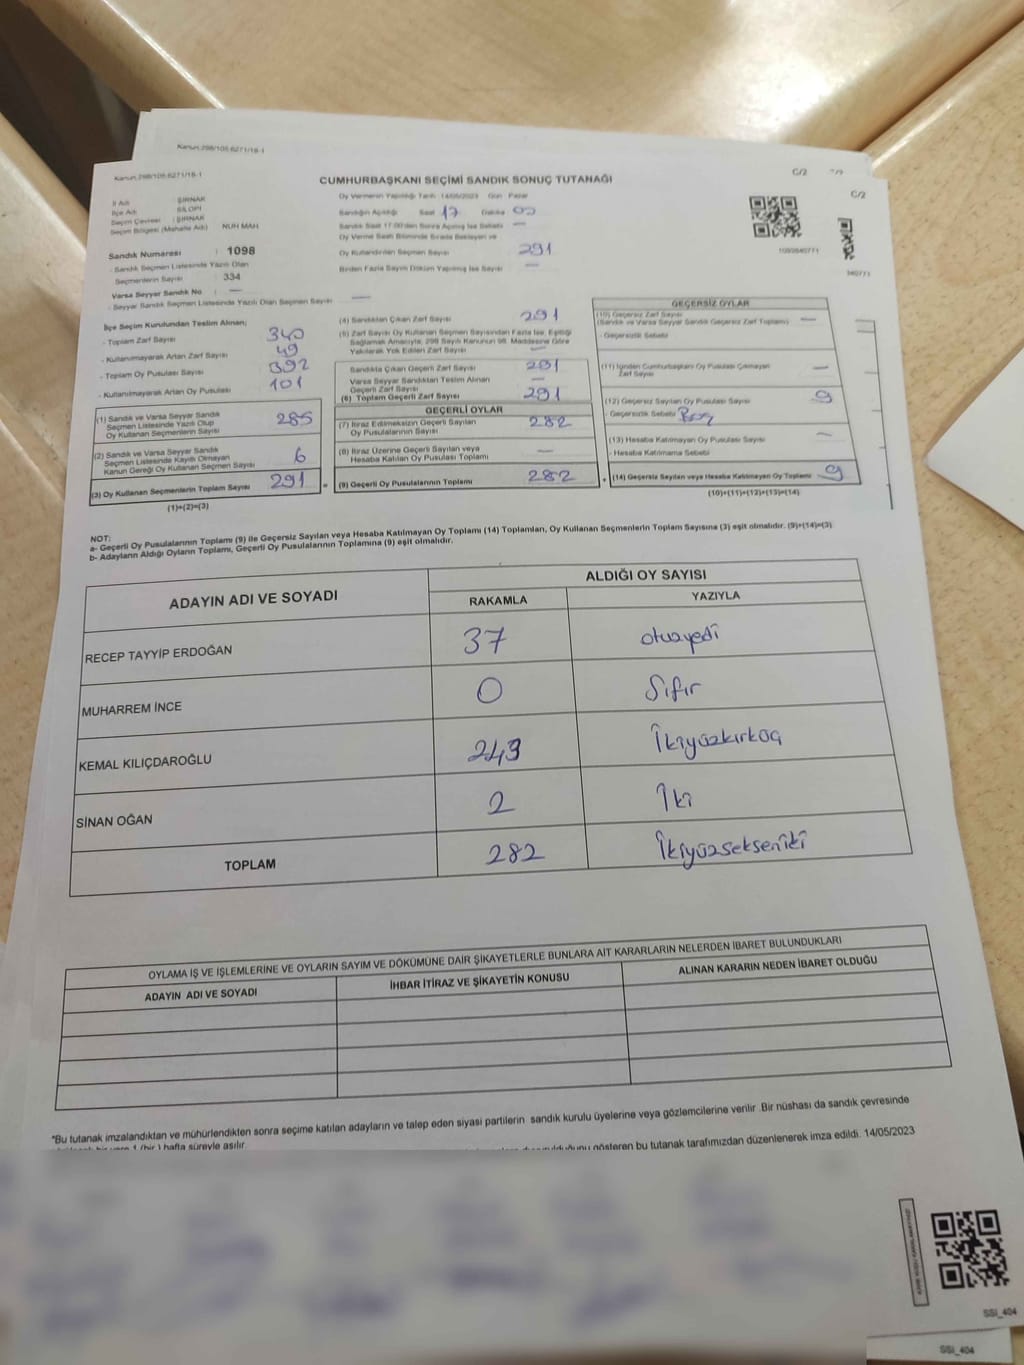 Kanun:298/105:6271/18-1
Kanun:298/105:6271/18-1
C/2
C/2
CUMHURBAŞKANI SEÇİMİ SANDIK SONUÇ TUTANAĞI
İl Adı : ŞIRNAK
İlçe Adı : SİLOPİ
Seçim Çevresi : ŞIRNAK
Seçim Bölgesi (Mahalle Adı) NUH MAH
Sandık Numarası : 1098
- Sandık Seçmen Listesinde Yazılı Olan
Seçmenlerin Sayısı : 334
Varsa Seyyar Sandık No —
- Seyyar Sandık Seçmen Listesinde Yazılı Olan Seçmen Sayısı —
Oy Vermenin Yapıldığı Tarih 14/05/2023 Gün Pazar
Sandığın Açıldığı Saat 17 Dakika 00
Sandık Saat 17:00'den Sonra Açılmış İse Sebebi —
Oy Verme Saati Bitiminde Sırada Bekleyen ve
Oy Kullandırılan Seçmen Sayısı 291
Birden Fazla Sayım Döküm Yapılmış İse Sayısı —
İlçe Seçim Kurulundan Teslim Alınan;
- Toplam Zarf Sayısı 340
- Kullanılmayarak Artan Zarf Sayısı 49
- Toplam Oy Pusulası Sayısı 392
- Kullanılmayarak Artan Oy Pusulası 101
(1) Sandık ve Varsa Seyyar Sandık
Seçmen Listesinde Yazılı Olup
Oy Kullanan Seçmenlerin Sayısı 285
(2) Sandık ve Varsa Seyyar Sandık
Seçmen Listesinde Kayıtlı Olmayan
Kanun Gereği Oy Kullanan Seçmen Sayısı 6
(3) Oy Kullanan Seçmenlerin Toplam Sayısı 291
(1)+(2)=(3)
(4) Sandıktan Çıkan Zarf Sayısı 291
(5) Zarf Sayısı Oy Kullanan Seçmen Sayısından Fazla İse, Eşitliği
Sağlamak Amacıyla; 298 Sayılı Kanunun 98. Maddesine Göre
Yakılarak Yok Edilen Zarf Sayısı —
Sandıkta Çıkan Geçerli Zarf Sayısı 291
Varsa Seyyar Sandıktan Teslim Alınan
Geçerli Zarf Sayısı —
(6) Toplam Geçerli Zarf Sayısı 291
GEÇERLİ OYLAR
(7) İtiraz Edilmeksizin Geçerli Sayılan
Oy Pusulalarının Sayısı 282
(8) İtiraz Üzerine Geçerli Sayılan veya
Hesaba Katılan Oy Pusulası Toplamı —
(9) Geçerli Oy Pusulalarının Toplamı 282
GEÇERSİZ OYLAR
(10) Geçersiz Zarf Sayısı
(Sandık ve Varsa Seyyar Sandık Geçersiz Zarf Toplamı) —
- Geçersizlik Sebebi
(11) İçinden Cumhurbaşkanı Oy Pusulası Çıkmayan
Zarf Sayısı —
(12) Geçersiz Sayılan Oy Pusulası Sayısı 9
- Geçersizlik Sebebi Boş
(13) Hesaba Katılmayan Oy Pusulası Sayısı —
- Hesaba Katılmama Sebebi
(14) Geçersiz Sayılan veya Hesaba Katılmayan Oy Toplamı 9
(10)+(11)+(12)+(13)=(14)
NOT:
a- Geçerli Oy Pusulalarının Toplamı (9) ile Geçersiz Sayılan veya Hesaba Katılmayan Oy Toplamı (14) Toplamları, Oy Kullanan Seçmenlerin Toplam Sayısına (3) eşit olmalıdır. (9)+(14)=(3)
b- Adayların Aldığı Oyların Toplamı, Geçerli Oy Pusulalarının Toplamına (9) eşit olmalıdır.
ADAYIN ADI VE SOYADI
ALDIĞI OY SAYISI
RAKAMLA YAZIYLA
RECEP TAYYİP ERDOĞAN 37 otuzyedi
MUHARREM İNCE 0 Sıfır
KEMAL KILIÇDAROĞLU 243 İkiyüzkırküç
SİNAN OĞAN 2 İki
TOPLAM 282 İkiyüzsekseniki
OYLAMA İŞ VE İŞLEMLERİNE VE OYLARIN SAYIM VE DÖKÜMÜNE DAİR ŞİKAYETLERLE BUNLARA AİT KARARLARIN NELERDEN İBARET BULUNDUKLARI
ADAYIN ADI VE SOYADI İHBAR İTİRAZ VE ŞİKAYETİN KONUSU ALINAN KARARIN NEDEN İBARET OLDUĞU
*Bu tutanak imzalandıktan ve mühürlendikten sonra seçime katılan adayların ve talep eden siyasi partilerin sandık kurulu üyelerine veya gözlemcilerine verilir .Bir nüshası da sandık çevresinde
bir yere 1 (bir ) hafta süreyle asılır.
gösteren bu tutanak tarafımızdan düzenlenerek imza edildi. 14/05/2023
SSI_404
SSI_404